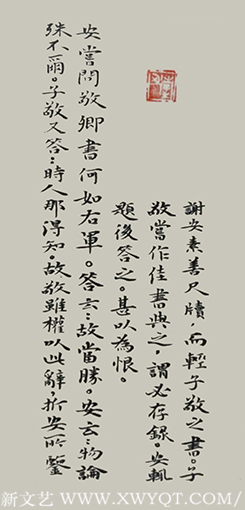 謝安素善尺牘，而輕子敬之書。子
敬嘗作佳書與之，謂必存録。安輒
題後答之。甚以為恨。
安嘗問敬卿書何如右軍。答云：故當勝。安云：物論
殊不爾。子敬又答：時人那得知。故敬雖權以此辭，折安所鑒
新文艺 WWW.XWYQT.COM